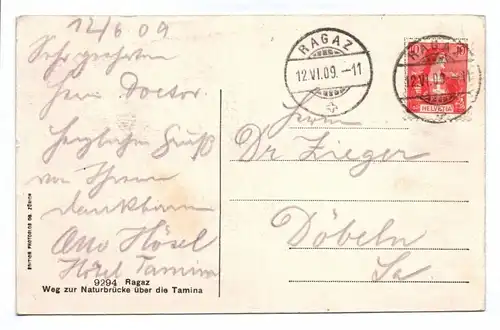 12/6 09
Sehr geehrter
Herr Doctor.
Herzlichen Gruß
von Ihrem
dankbaren
Otto Hösel
Hôtel Tamina
9294 Ragaz
Weg zur Naturbrücke über die Tamina
EDITION PHOTOGLOB CO. ZÜRICH
RAGAZ
12.VI.09.-11
RAGAZ
12.VI.09.-11
HELVETIA
Herrn
Dr Zieger
Döbeln
Sa